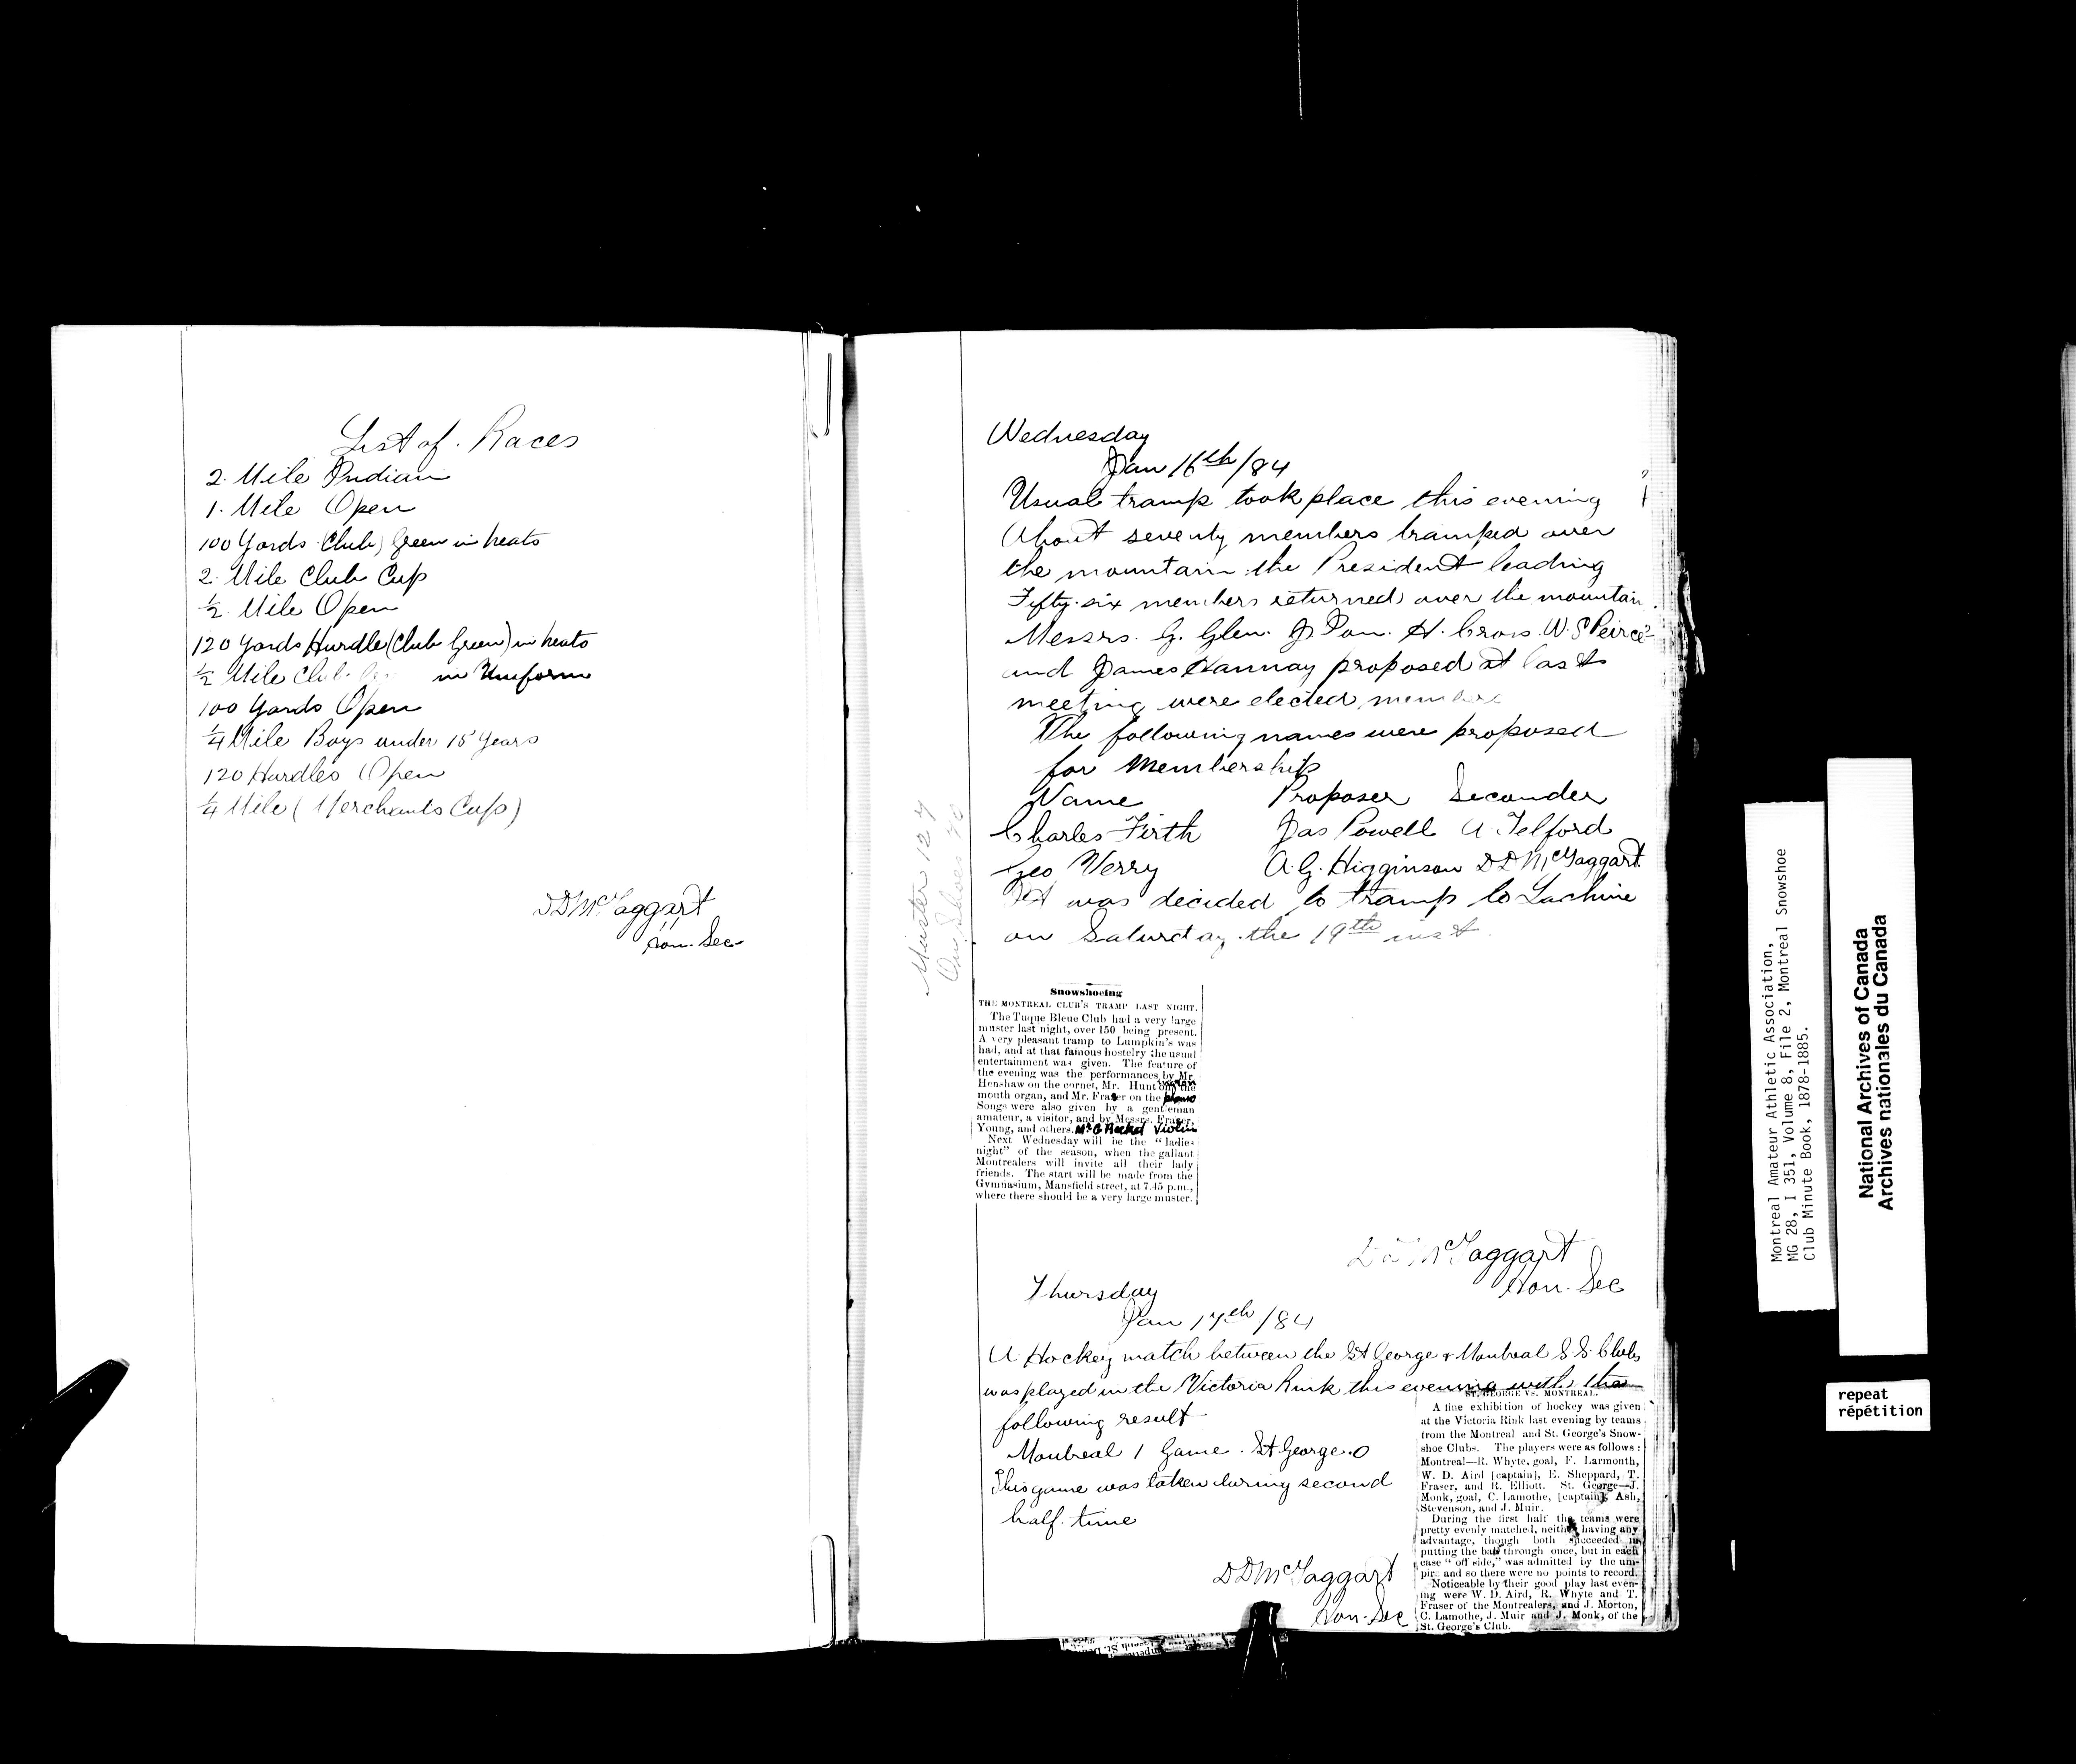 List of Races
2. Mile Indian
1. Mile Open
100 Yards Club) Green in heats
2. Mile Club Cup
½ Mile Open
120 Yards Hurdle (Club Green) in heats
½ Mile Club in Uniform
100 Yards Open
¼ Mile Boys under 15 Years
120 Hurdles Open
¼ Mile (Merchants Cup)
DD McTaggart
Hon. Sec
Wednesday
Jan 16th/84
Usual tramp took place this evening
About seventy members tramped over
the mountain the President leading
Fifty-six members returned over the mountain.
Messrs. G. Glen. J. H. Cross. W. S Peirce
and James Hannay proposed at last
meeting were elected members
The following names were proposed
for Membership
Name Proposer Seconder
Charles Firth Jas Powell A. Telford
Geo Verry A. G. Higginson DD McTaggart
It was decided to tramp to Lachine
on Saturday the 19th inst.
Muster 127
On Shoes 70
Snowshoeing
THE MONTREAL CLUB'S TRAMP LAST NIGHT.
The Tuque Bleue Club had a very large
muster last night, over 150 being present.
A very pleasant tramp to Lumpkin's was
had, and at that famous hostelry the usual
entertainment was given. The feature of
the evening was the performances by Mr.
Henshaw on the cornet, Mr. Hunt on the
mouth organ, and Mr. Fraser on the piano
Songs were also given by a gentleman
amateur, a visitor, and by Messrs. Fraser,
Young, and others. Violin
Next Wednesday will be the "ladies
night" of the season, when the gallant
Montrealers will invite all their lady
friends. The start will be made from the
Gymnasium, Mansfield street, at 7.45 p.m.,
where there should be a very large muster.
DD McTaggart
Hon. Sec
Thursday
Jan 17th/84
A Hockey match between the St George & Montreal S. S. Clubs
was played in the Victoria Rink this evening with the
following result
Montreal 1 Game. St George. 0
This game was taken during second
half time
DD McTaggart
Hon. Sec
ST. GEORGE VS. MONTREAL.
A fine exhibition of hockey was given
at the Victoria Rink last evening by teams
from the Montreal and St. George's Snow-
shoe Clubs. The players were as follows:
Montreal—R. Whyte, goal, F. Larmonth,
W. D. Aird [captain], E. Sheppard, T.
Fraser, and R. Elliott. St. George—J.
Monk, goal, C. Lamothe, [captain], Ash,
Stevenson, and J. Muir.
During the first half the teams were
pretty evenly matched, neither having any
advantage, though both succeeded in
putting the ball through once, but in each
case "off side," was admitted by the um-
pire and so there were no points to record.
Noticeable by their good play last even-
ing were W. D. Aird, R. Whyte and T.
Fraser of the Montrealers, and J. Morton,
C. Lamothe, J. Muir and J. Monk, of the
St. George's Club.
Montreal Amateur Athletic Association,
MG 28, I 351, Volume 8, File 2, Montreal Snowshoe
Club Minute Book, 1878-1885.
National Archives of Canada
Archives nationales du Canada
repeat
répétition